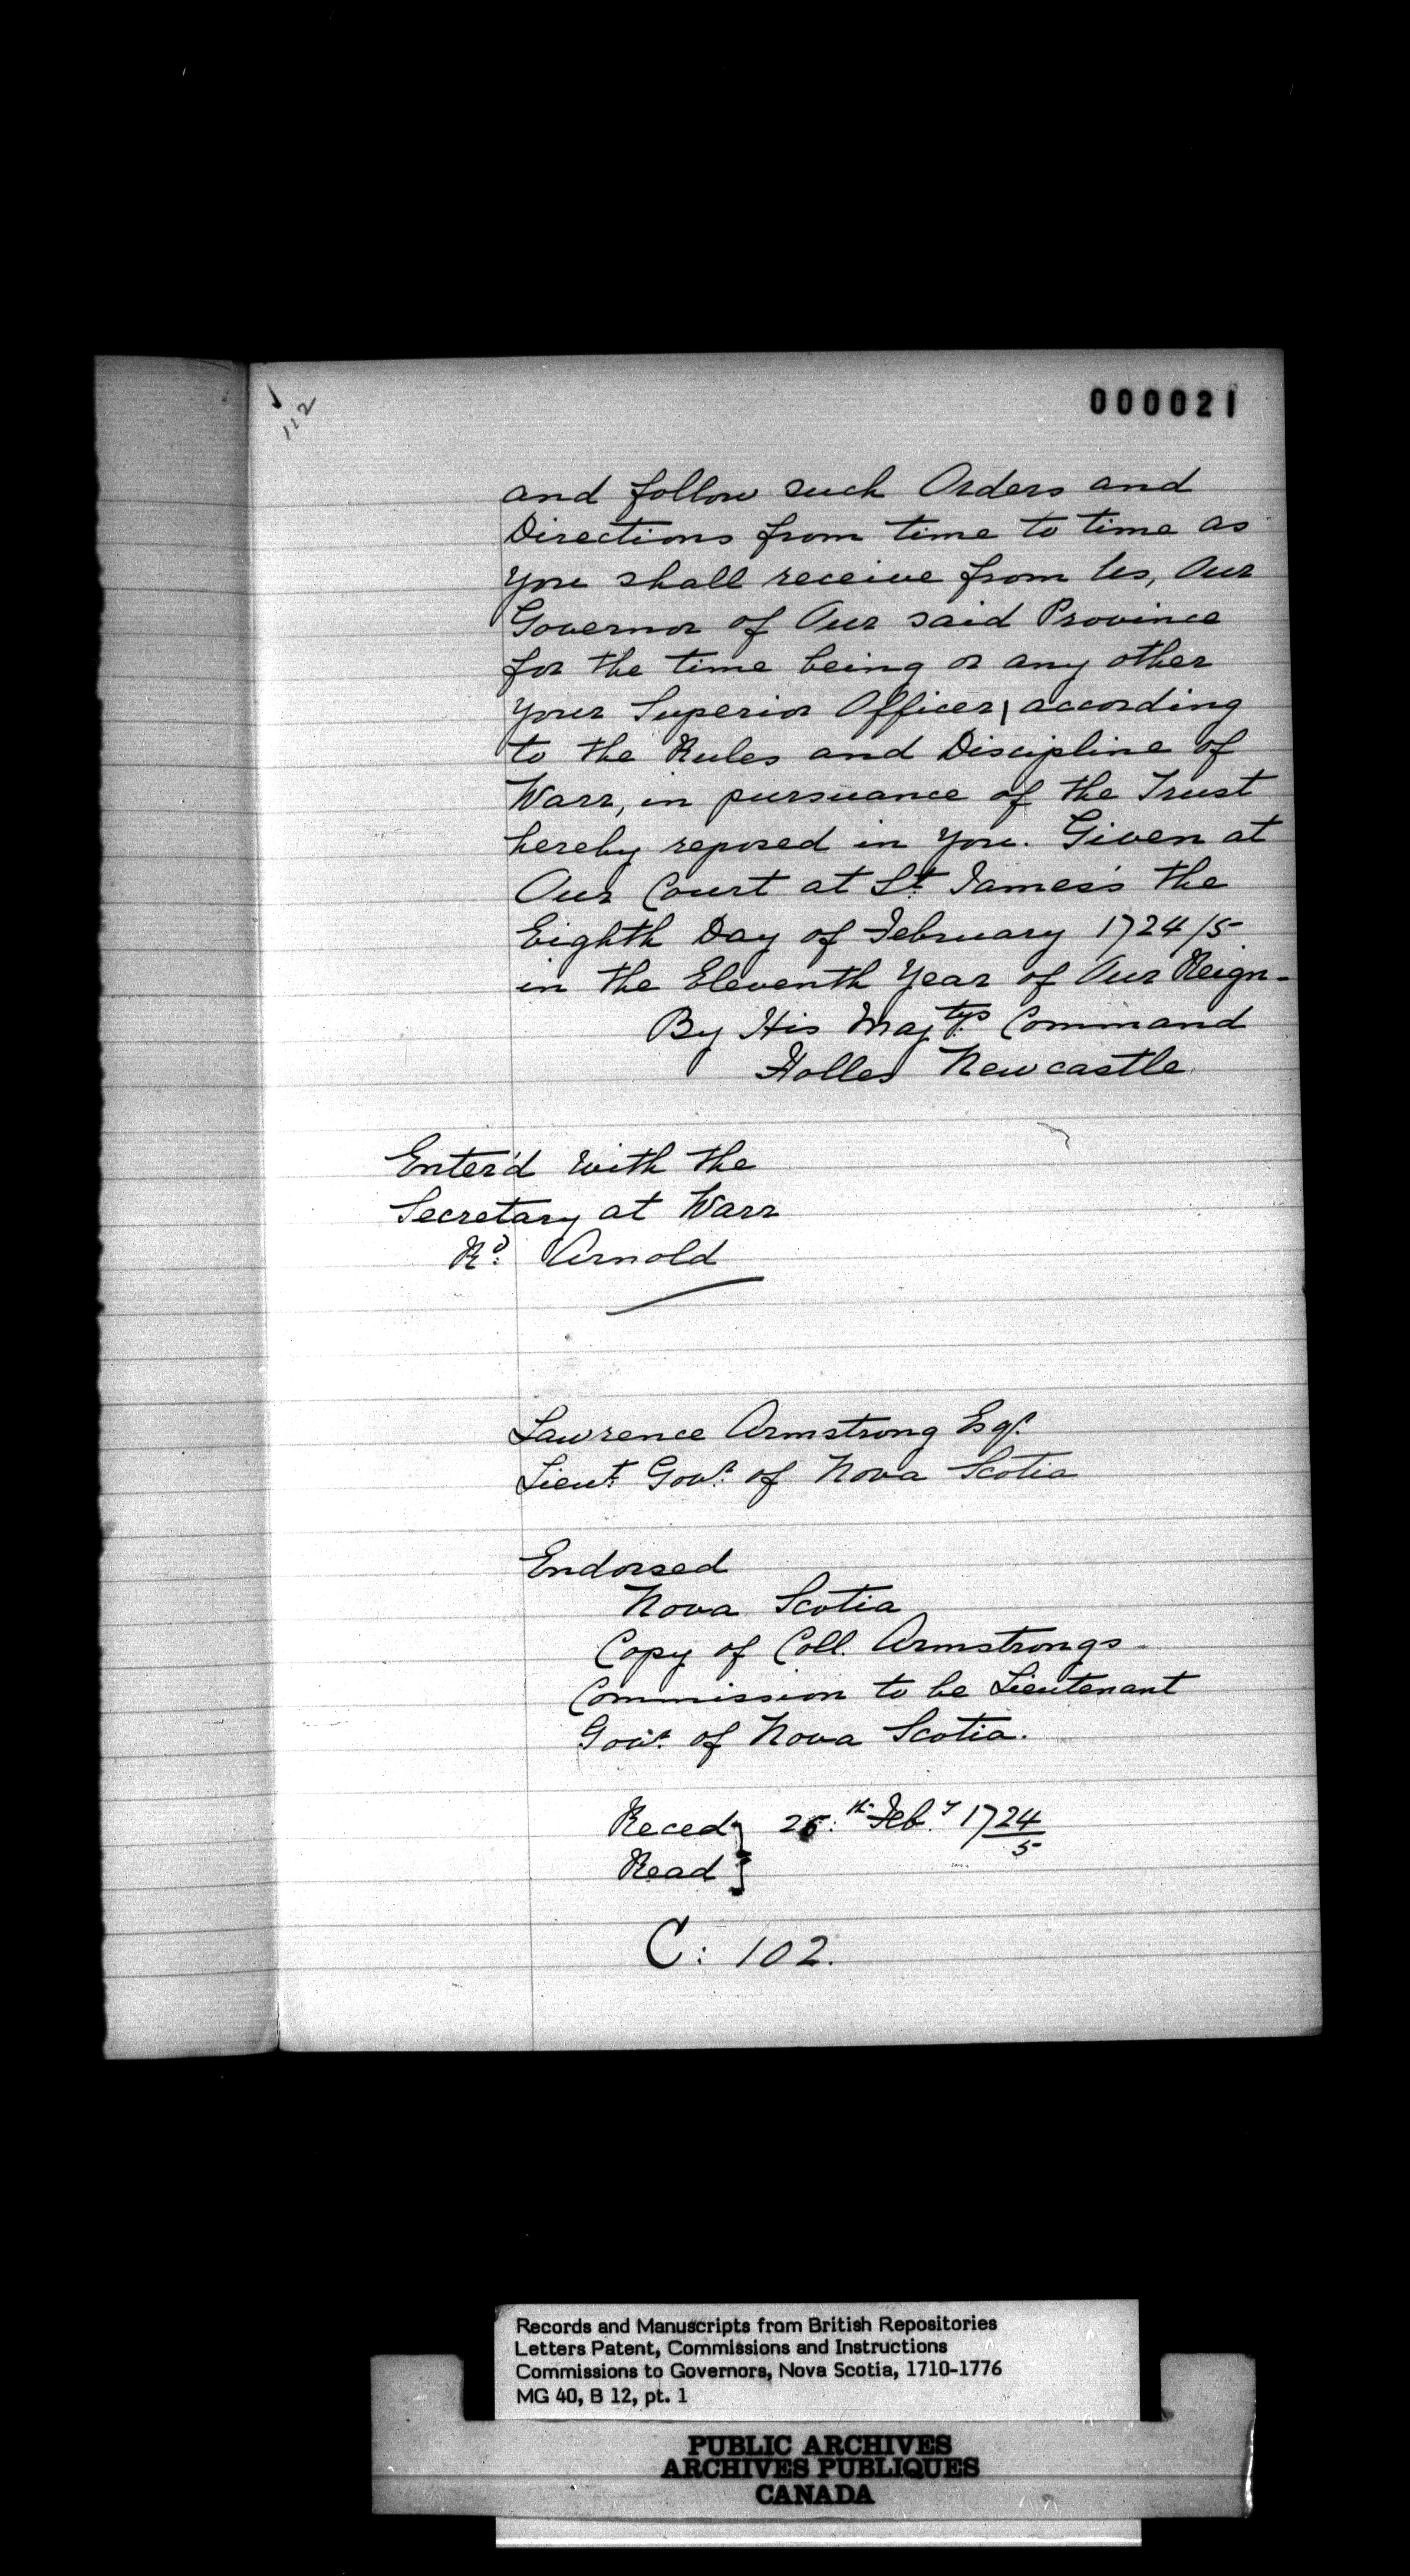 112
000021
and follow such Orders and
Directions from time to time as
you shall receive from Us, Our
Governor of Our said Province
for the time being or any other
your Superior Officer, according
to the Rules and Discipline of
Warr, in pursuance of the Trust
hereby reposed in you. Given at
Our Court at St. James's the
Eighth Day of February 1724/5
in the Eleventh Year of Our Reign.
By His Majtys Command
Holles Newcastle
Enter'd with the
Secretary at Warr
Rd: Arnold
Lawrence Armstrong Esqr.
Lieut. Govr. of Nova Scotia
Endorsed
Nova Scotia
Copy of Coll. Armstrongs
Commission to be Lieutenant
Govr. of Nova Scotia.
Reced } 25th Feb.y 1724/5
Read }
C: 102.
Records and Manuscripts from British Repositories
Letters Patent, Commissions and Instructions
Commissions to Governors, Nova Scotia, 1710-1776
MG 40, B 12, pt. 1
PUBLIC ARCHIVES
ARCHIVES PUBLIQUES
CANADA